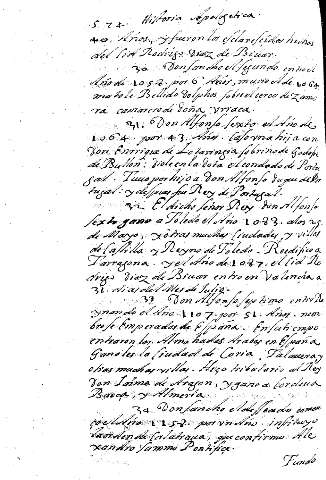 524. Historia Apologetica
40. Años, y fueron los esclarecidos hechos
del Cid Rodrigo Diaz de Bivar.
30. Don Sancho el segundo entro el
Año de 1058. por 6. Años, murio el de 1064
matole Bellido Dolphos sobre el cerco de Zamo
ra comarca de doña Vrraca.
31. Don Alfonso sexto el Año de
1064. por 43. Años. Caso una hija con
Don Enrrique de Lotaringia sobrino de Godofre
de Bullon: diole en dote el condado de Portu
gal. Tuvo por hijo a don Alfonso duque de Por
tugal. y despues fue Rey de Portugal.
32. El dicho señor Rey Don Alfonso
sexto gano a Toledo el Año 1083. a los 25
de Mayo, y otras muchas Ciudades, y villas
de Castilla, y Reyno de Toledo. Reedifico a
Tarragona. y el Año de 1087. el Cid Ro
drigo Diaz de Bivar entro en Valencia a
31. dias del Mes de Julio.
33. Don Alfonso septimo entro Re
ynando el Año 1107. por 51. Años. nom
brose Emperador de España. En su tiempo
entraron los Almohades Arabes en España
Gano les la Ciudad de Coria, Talavera y
otras muchas villas. Hizo tributario al Rey
Don Jaime de Aragon, y gano a Cordova
Baeça, y Almeria.
34. Don Sancho el desseado comen
ço el Año 1158. por un Año. instituyo
la orden de Calatrava, que confirmo Ale
xandro summo Pontifice.
Fundo